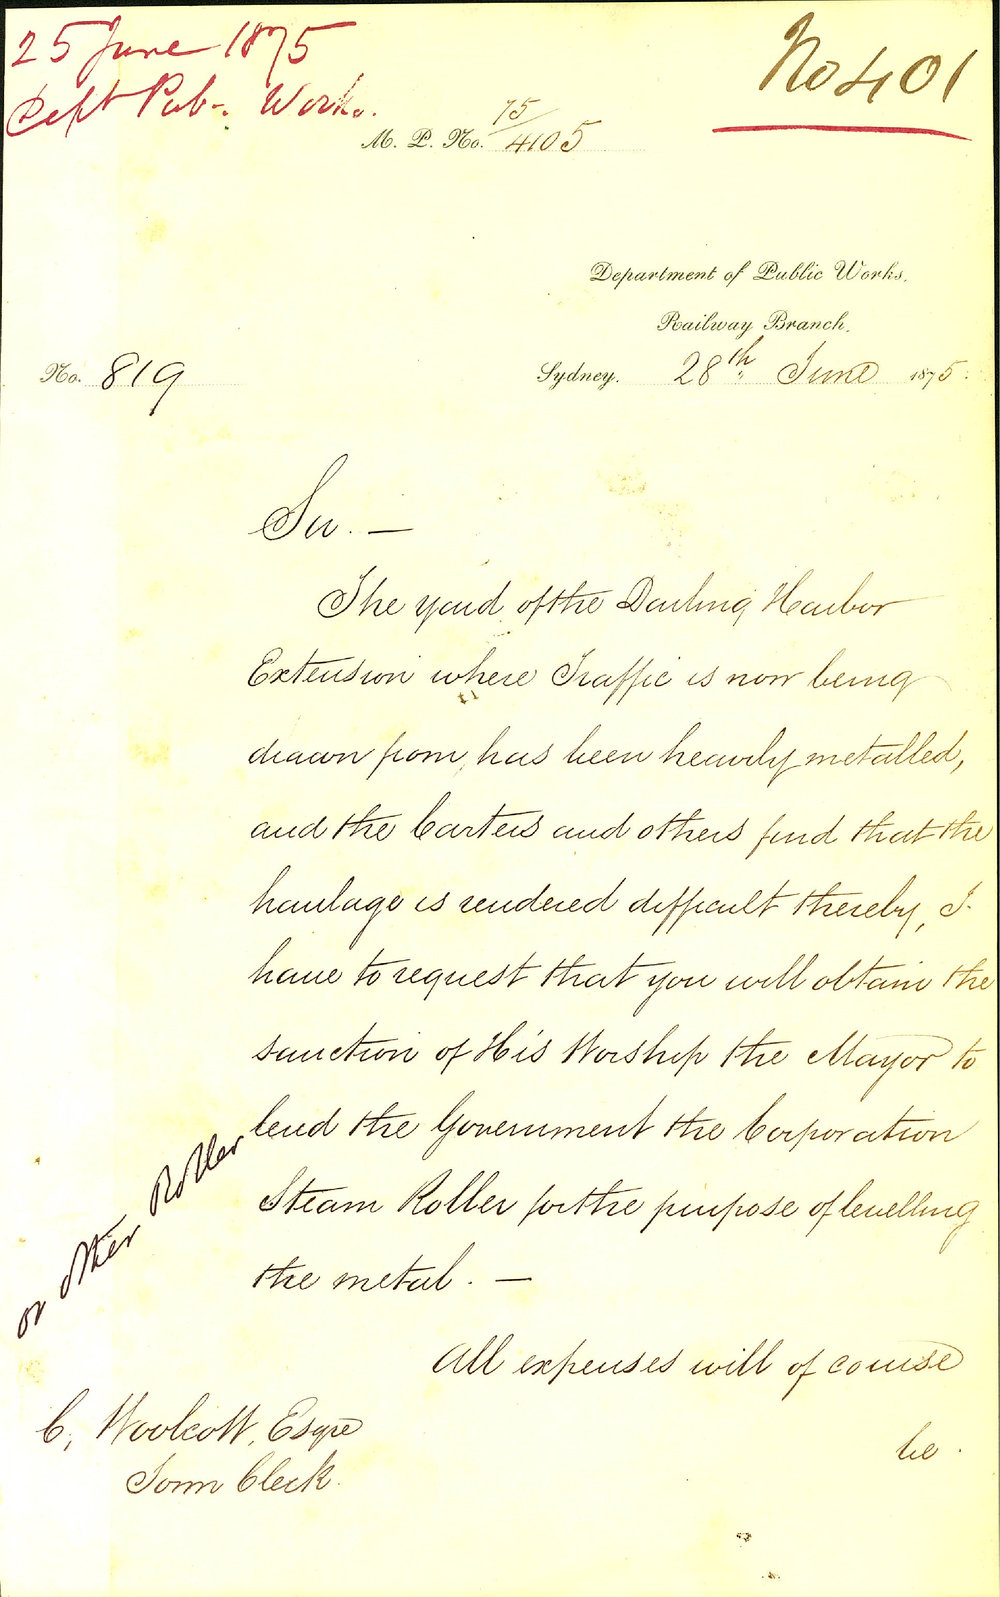 25 June 1875
Dept Pub. Works.
No 401
75/
M. P. No. 4105
Department of Public Works.
Railway Branch.
No. 819
Sydney. 28th June 1875.
Sir. —
The yard of the Darling Harbor
Extension where Traffic is now being
drawn from, has been heavily metalled,
and the Carters and others find that the
haulage is rendered difficult thereby, I
have to request that you will obtain the
sanction of His Worship the Mayor to
lend the Government the Corporation
or other Roller
Steam Roller for the purpose of levelling
the metal. —
All expenses will of course
be
C. Woolcott, Esqre
Town Clerk.